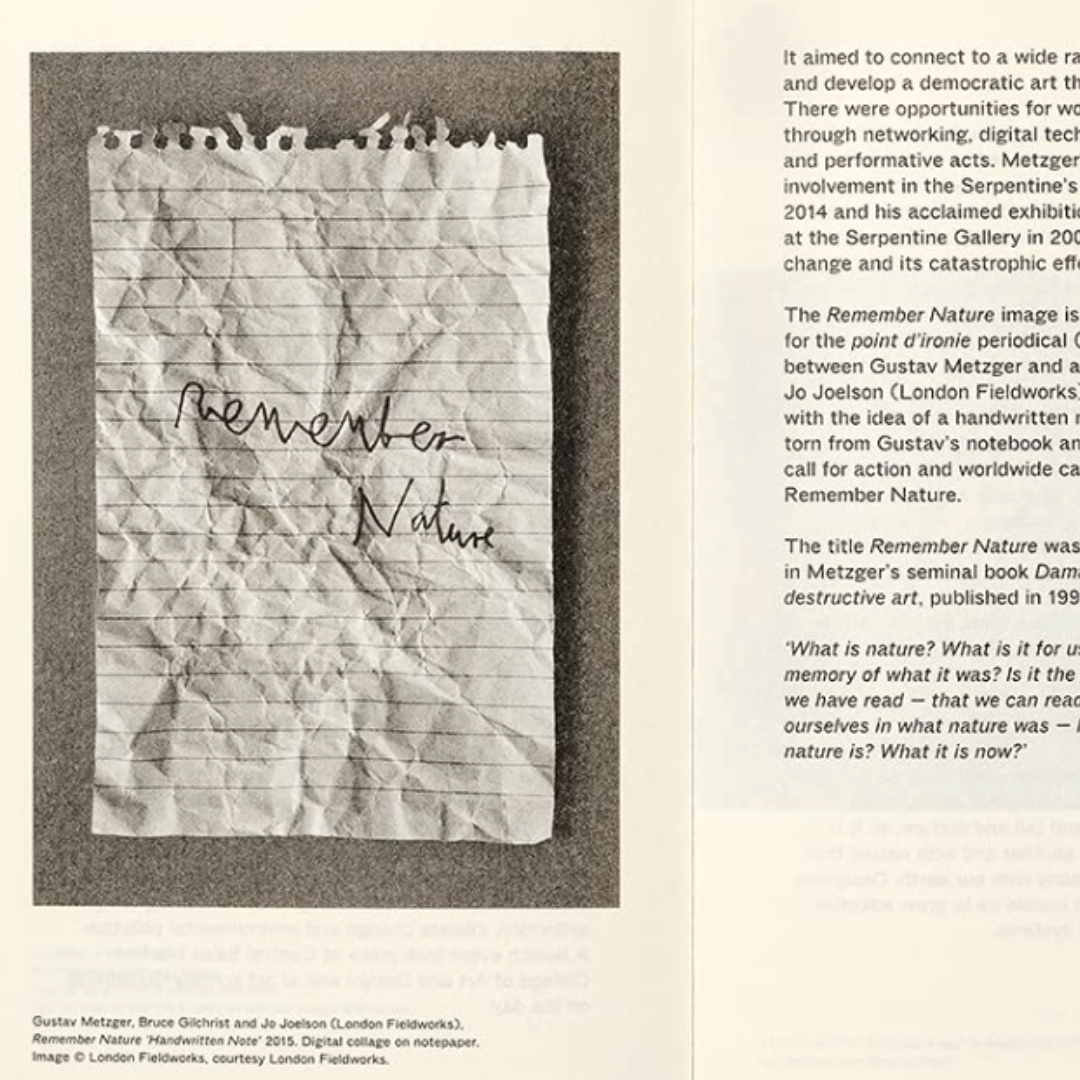 Remember
Nature
Gustav Metzger, Bruce Gilchrist and Jo Joelson (London Fieldworks),
Remember Nature 'Handwritten Note' 2015. Digital collage on notepaper.
Image © London Fieldworks, courtesy London Fieldworks.
It aimed to connect to a wide ra
and develop a democratic art th
There were opportunities for wo
through networking, digital tech
and performative acts. Metzger
involvement in the Serpentine's
2014 and his acclaimed exhibitio
at the Serpentine Gallery in 200
change and its catastrophic effe
The Remember Nature image is
for the point d'ironie periodical (
between Gustav Metzger and a
Jo Joelson (London Fieldworks)
with the idea of a handwritten n
torn from Gustav's notebook an
call for action and worldwide ca
Remember Nature.
The title Remember Nature was
in Metzger's seminal book Dama
destructive art, published in 199
'What is nature? What is it for us
memory of what it was? Is it the
we have read – that we can read
ourselves in what nature was –
nature is? What it is now?'